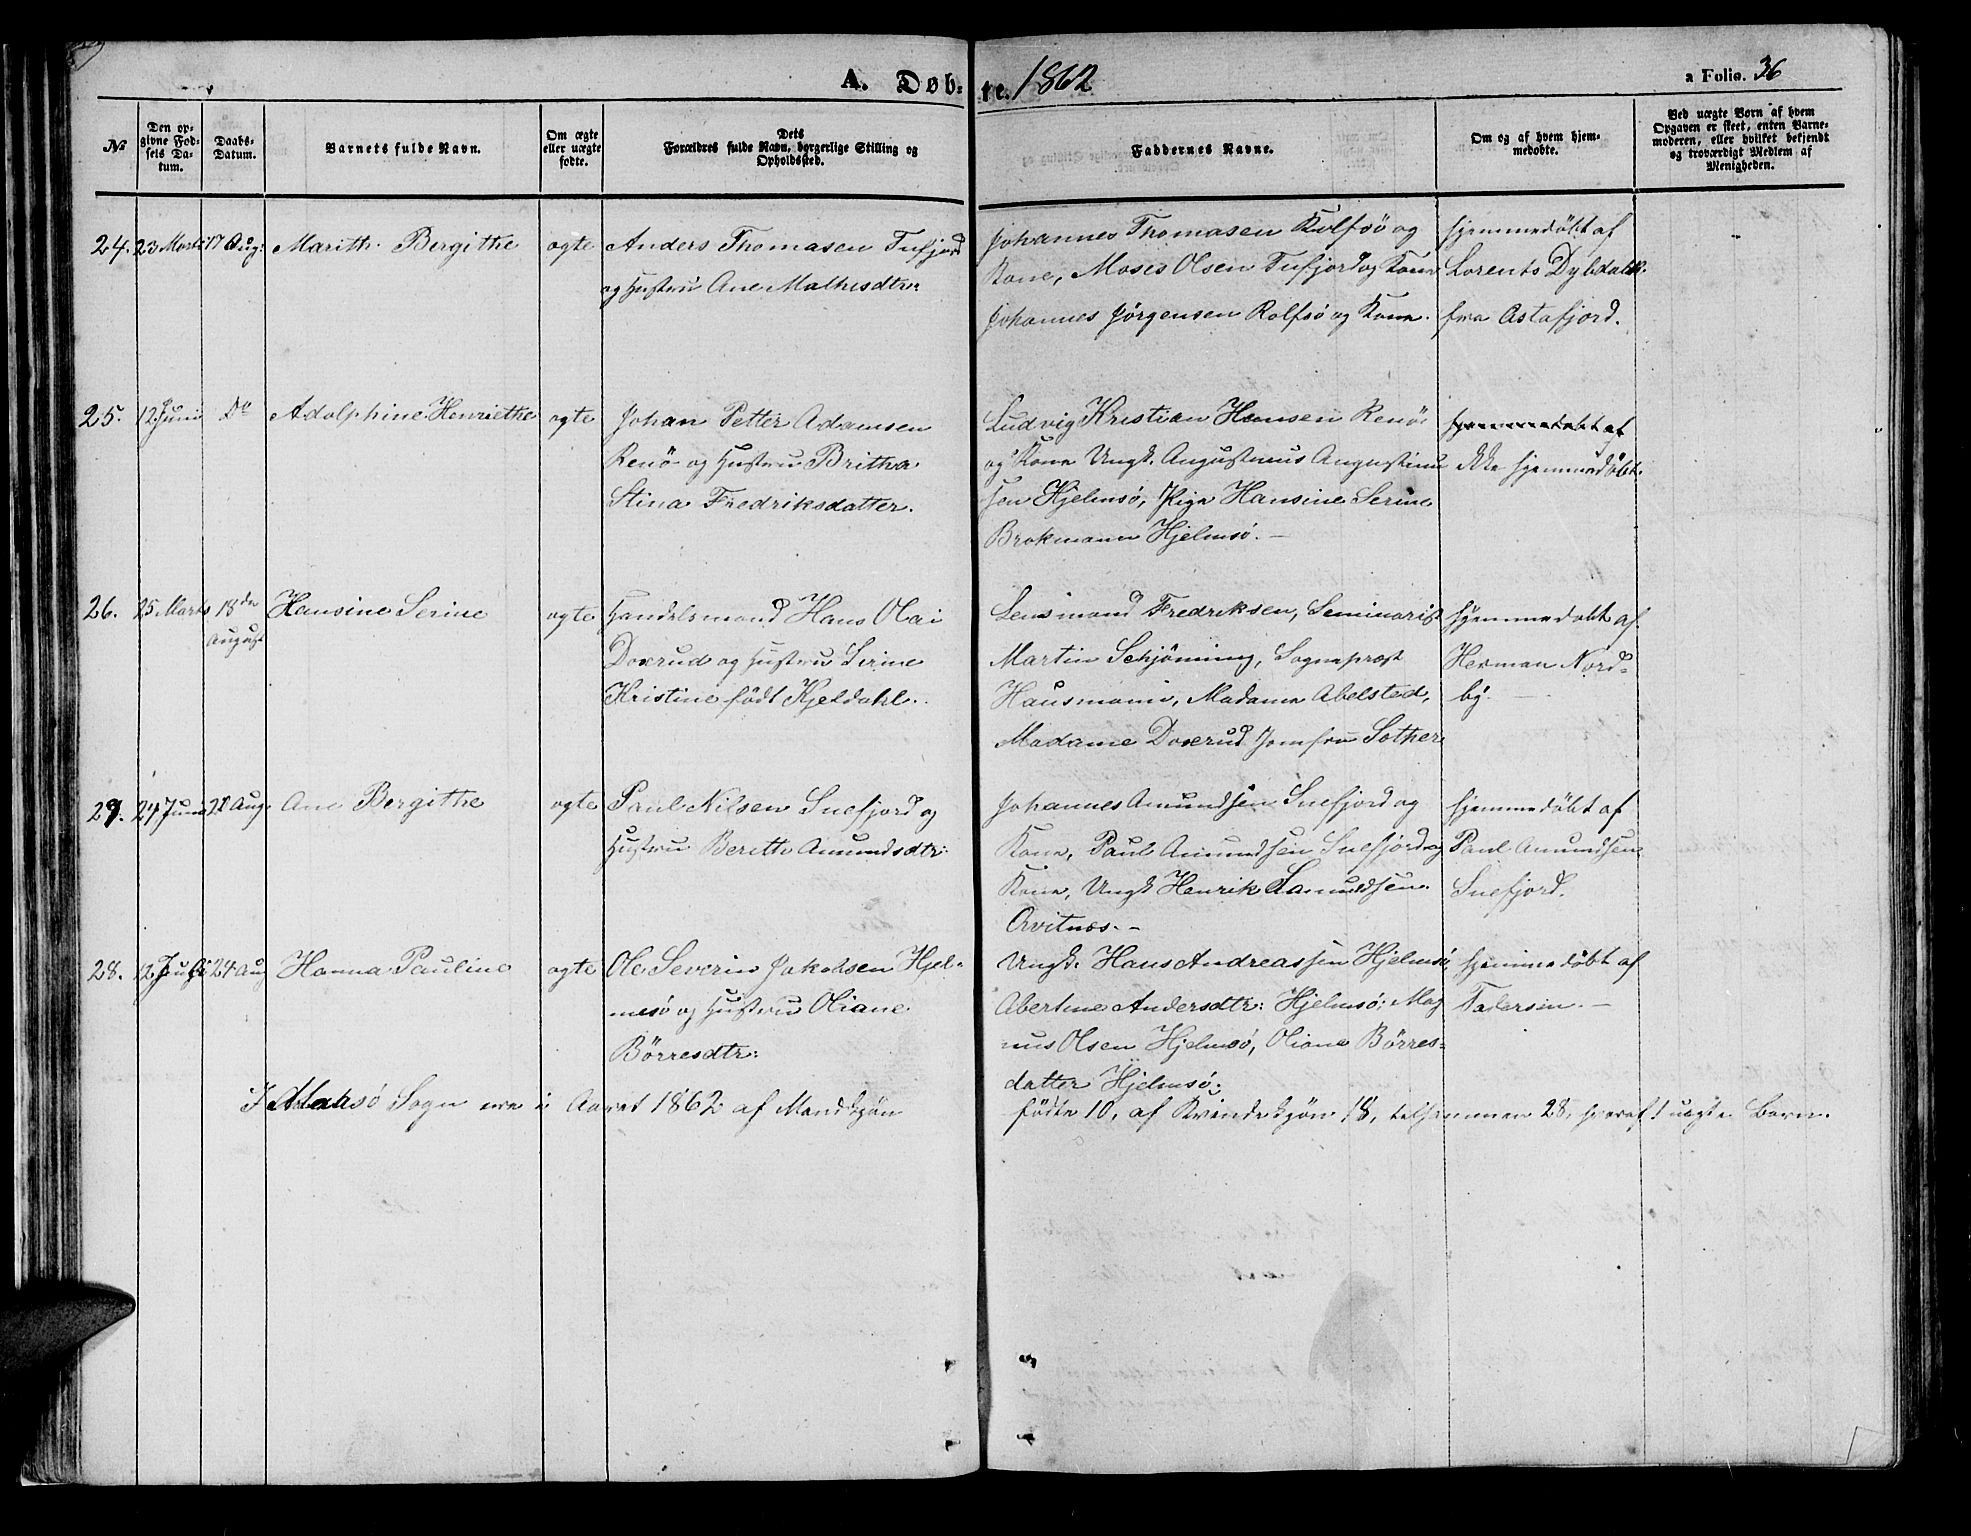 A. Døb- te. 1862
a Folio. 36
No
Den op-
givne Fød-
sels Da-
tum.
Daabs-
Datum.
Barnets fulde Navn.
Om ægte
eller uægte
fødte.
Dets
Forældres fulde Navn, borgerlige Stilling og
Opholdssted.
Faddernes Navne.
Om og af hvem hjem-
medøbte.
Ved uægte Børn af hvem
Opgaven er skeet, enten Barne-
moderen, eller hvilket bekjendt
og troværdigt Medlem af
Menigheden.
24.
23 Marts
17 Aug:
Marith Bergithe
ægte
Anders Thomasen Tufjord
og Hustru Ane Mathisdtr:
Johannes Thomasen Rolfsö og
Kone, Moses Olsen Tufjord og Kone
Johannes Jørgensen Rolfsö og Kone.
hjemmedöbt af
Lorents Dybdahl
fra Astafjord.
25.
12 Juni
Do
Adolphine Henriethe
ægte
Johan Petter Adamsen
Renö og Hustru Britha
Stina Fredriksdatter.
Ludvig Kristian Hansen Renö
og Kone Ungk. Augustinus Augustinu
sen Hjelmsö, Pige Hansine Serine
Brokmann Hjelmsö. —
hjemmedöbt af
ikke hjemmedöbt.
26.
25 Marts
18de
August
Hansine Serine
ægte
Handelsmand Hans Olai
Doxrud og Hustru Serine
Kristine födt Kjeldahl.
Lensmand Fredriksen, Seminarist
Martin Schjönning, Sogneprest
Hausmann, Madame Abelsted,
Madame Doxrud Jomfru Sother
hjemmedöbt af
Herman Nord-
by. —
27.
24 Juni
21 Aug.
Ane Bergithe
ægte
Paul Nilsen Snefjord og
Hustru Berith Amundsdtr:
Johannes Amundsen Snefjord og
Kone, Paul Amundsen Snefjord og
Kone, Ungk Henrik Samuelsen
Qvitnæs. -
hjemmedöbt af
Paul Amundsen
Snefjord.
28.
12 Juli
24 Aug
Hanna Pauline
ægte
Ole Severin Jakobsen Hjel-
mesö og Hustru Oliane
Börresdtr:
Ungk. Hans Andreassen Hjelmsö
Abertine Andersdtr: Hjelmsö; Mag
nus Olsen Hjelmsö, Oliane Börres-
datter Hjelmsö;
hjemmedöbt af
Federsen. —
I Maasö Sogn ere i Aaret 1862 af Mandkjön födte 10, af Kvindekjön 18, tilsammen 28, hvoraf 1 uægte Barn.